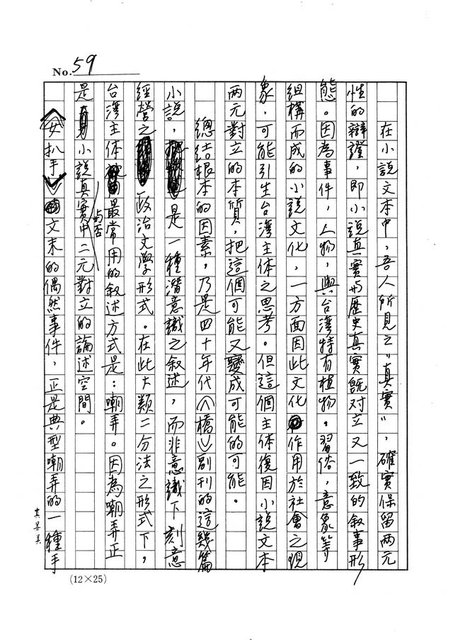 No. 59
在小說文本中，吾人所見之"真實"，確實保留兩元
性的辯證，即小說真實與歷史真實既对立又一致的叙事形
態。因為事件，人物，與台灣特有植物。習俗，意象等
組構而成的小說文化，一方面因此文化作用於社會之現
象，可能引生台灣主体之思考。但這個主体復因小說文本
两元對立的本質，把這個可能又變成可能的可能。
總結根本的因素，乃是四十年代《橋》副刊的這幾篇
小說，是一種潛意識之叙述，而非意識下刻意
經營之政治文學形式。在此大類二分法之形式下，
台灣主体最常用的叙述方式是：嘲弄。因為嘲弄正
是小說真實中與否二元對立的論述空間。
《女扒手》文末的偶然事件，正是典型嘲弄的一種手
(12×25)